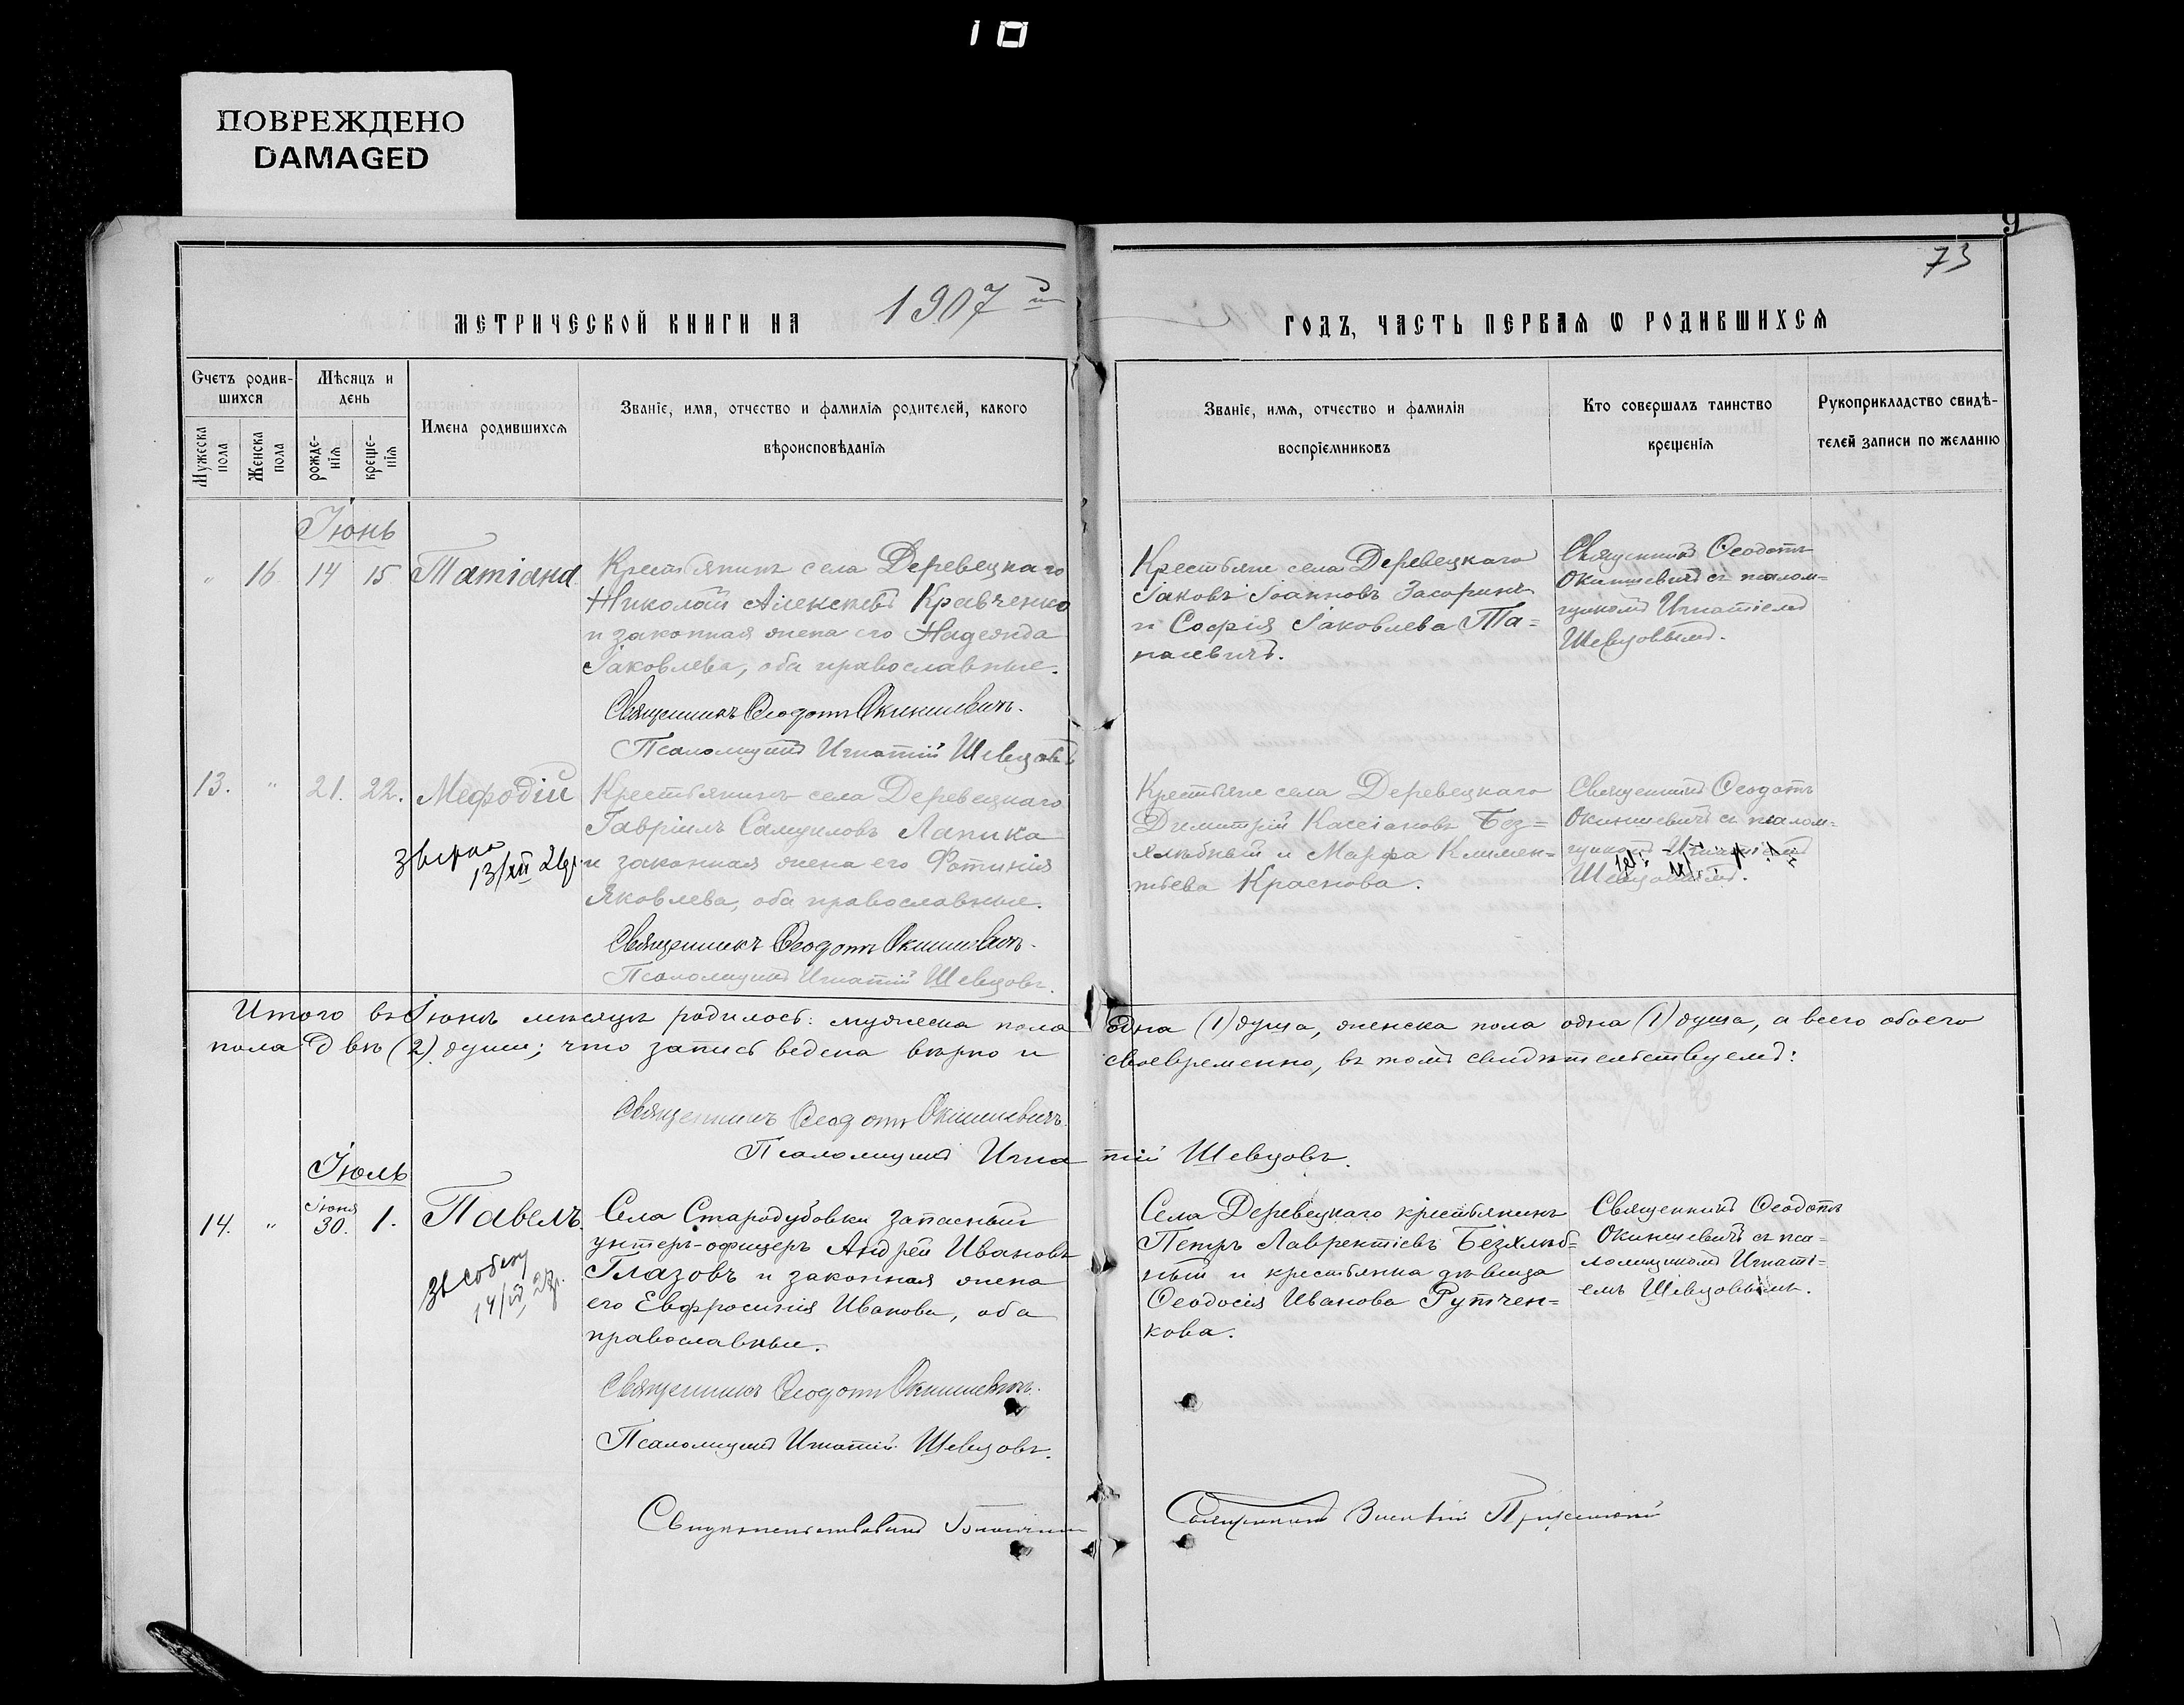 10
ПОВРЕЖДЕНО
DAMAGED
9
73
МЕТРИЧЕСКОЙ КНИГИ НА 1907й ГОДЪ, ЧАСТЬ ПЕРВАЯ Ѡ РОДИВШИХСЯ
Счетъ родив-
шихся
Мѣсяцъ и
день
Мужеска
пола
Женска
пола
рожде-
нія
креще-
нія
Имена родившихся
Званіе, имя, отчество и фамилія родителей, какого
вѣроисповѣданія
Званіе, имя, отчество и фамилія
воспріемниковъ
Кто совершалъ таинство
крещенія
Рукоприкладство свидѣ-
телей записи по желанію
Іюнь
" 16 14 15 Татіана
Крестьянинъ села Деревецкаго
Николай Алексѣевъ Кравченко
и законная жена его Надежда
Іаковлева, оба православные.
Священникъ Ѳеодотъ Окиншевичъ.
Псаломщикъ Игнатій Шевцовъ
Крестьяне села Деревецкаго
Іаковъ Іоанновъ Засоринъ
и Софія Іаковлева Та=
насевичъ.
Священникъ Ѳеодотъ
Окиншевичъ съ псалом=
щикомъ Игнатіемъ
Шевцовымъ.
13. " 21. 22. Меѳодій
звірно
13/XII 26р
Крестьянинъ села Деревецкаго
Гавріилъ Самуиловъ Лапика
и законная жена его Фотинія
Яковлева, оба православные.
Священникъ Ѳеодотъ Окиншевичъ.
Псаломщикъ Игнатій Шевцовъ.
Крестьяне села Деревецкаго
Димитрій Кассіановъ Без=
хлѣбный и Марфа Климен=
тьева Краснова.
Священникъ Ѳеодотъ
Окиншевичъ съ псалом=
щикомъ Игнатіемъ
Шевцовымъ.
Итого въ Іюнѣ мѣсяцѣ родилось: мужеска пола одна (1) душа, женска пола одна (1) душа, а всего обоего
пола двѣ (2) души; что запись ведена вѣрно и своевременно, въ томъ свидѣтельствуемъ:
Священникъ Ѳеодотъ Окиншевичъ.
Псаломщикъ Игнатій Шевцовъ.
Іюль
14. " Іюня 30. 1. Павелъ.
Села Стародубовки запасный
унтеръ-офицеръ Андрей Ивановъ
Глазовъ и законная жена
его Евфросинія Иванова, оба
православные.
Священникъ Ѳеодотъ Окиншевичъ.
Псаломщикъ Игнатій Шевцовъ.
Села Деревецкаго крестьянинъ
Петръ Лаврентіевъ Безхлѣб=
ный и крестьянка дѣвица
Ѳеодосія Иванова Рутчен=
кова.
Священникъ Ѳеодотъ
Окиншевичъ съ пса=
ломщикомъ Игнаті=
емъ Шевцовымъ.
Свидѣтельствовалъ Священникъ